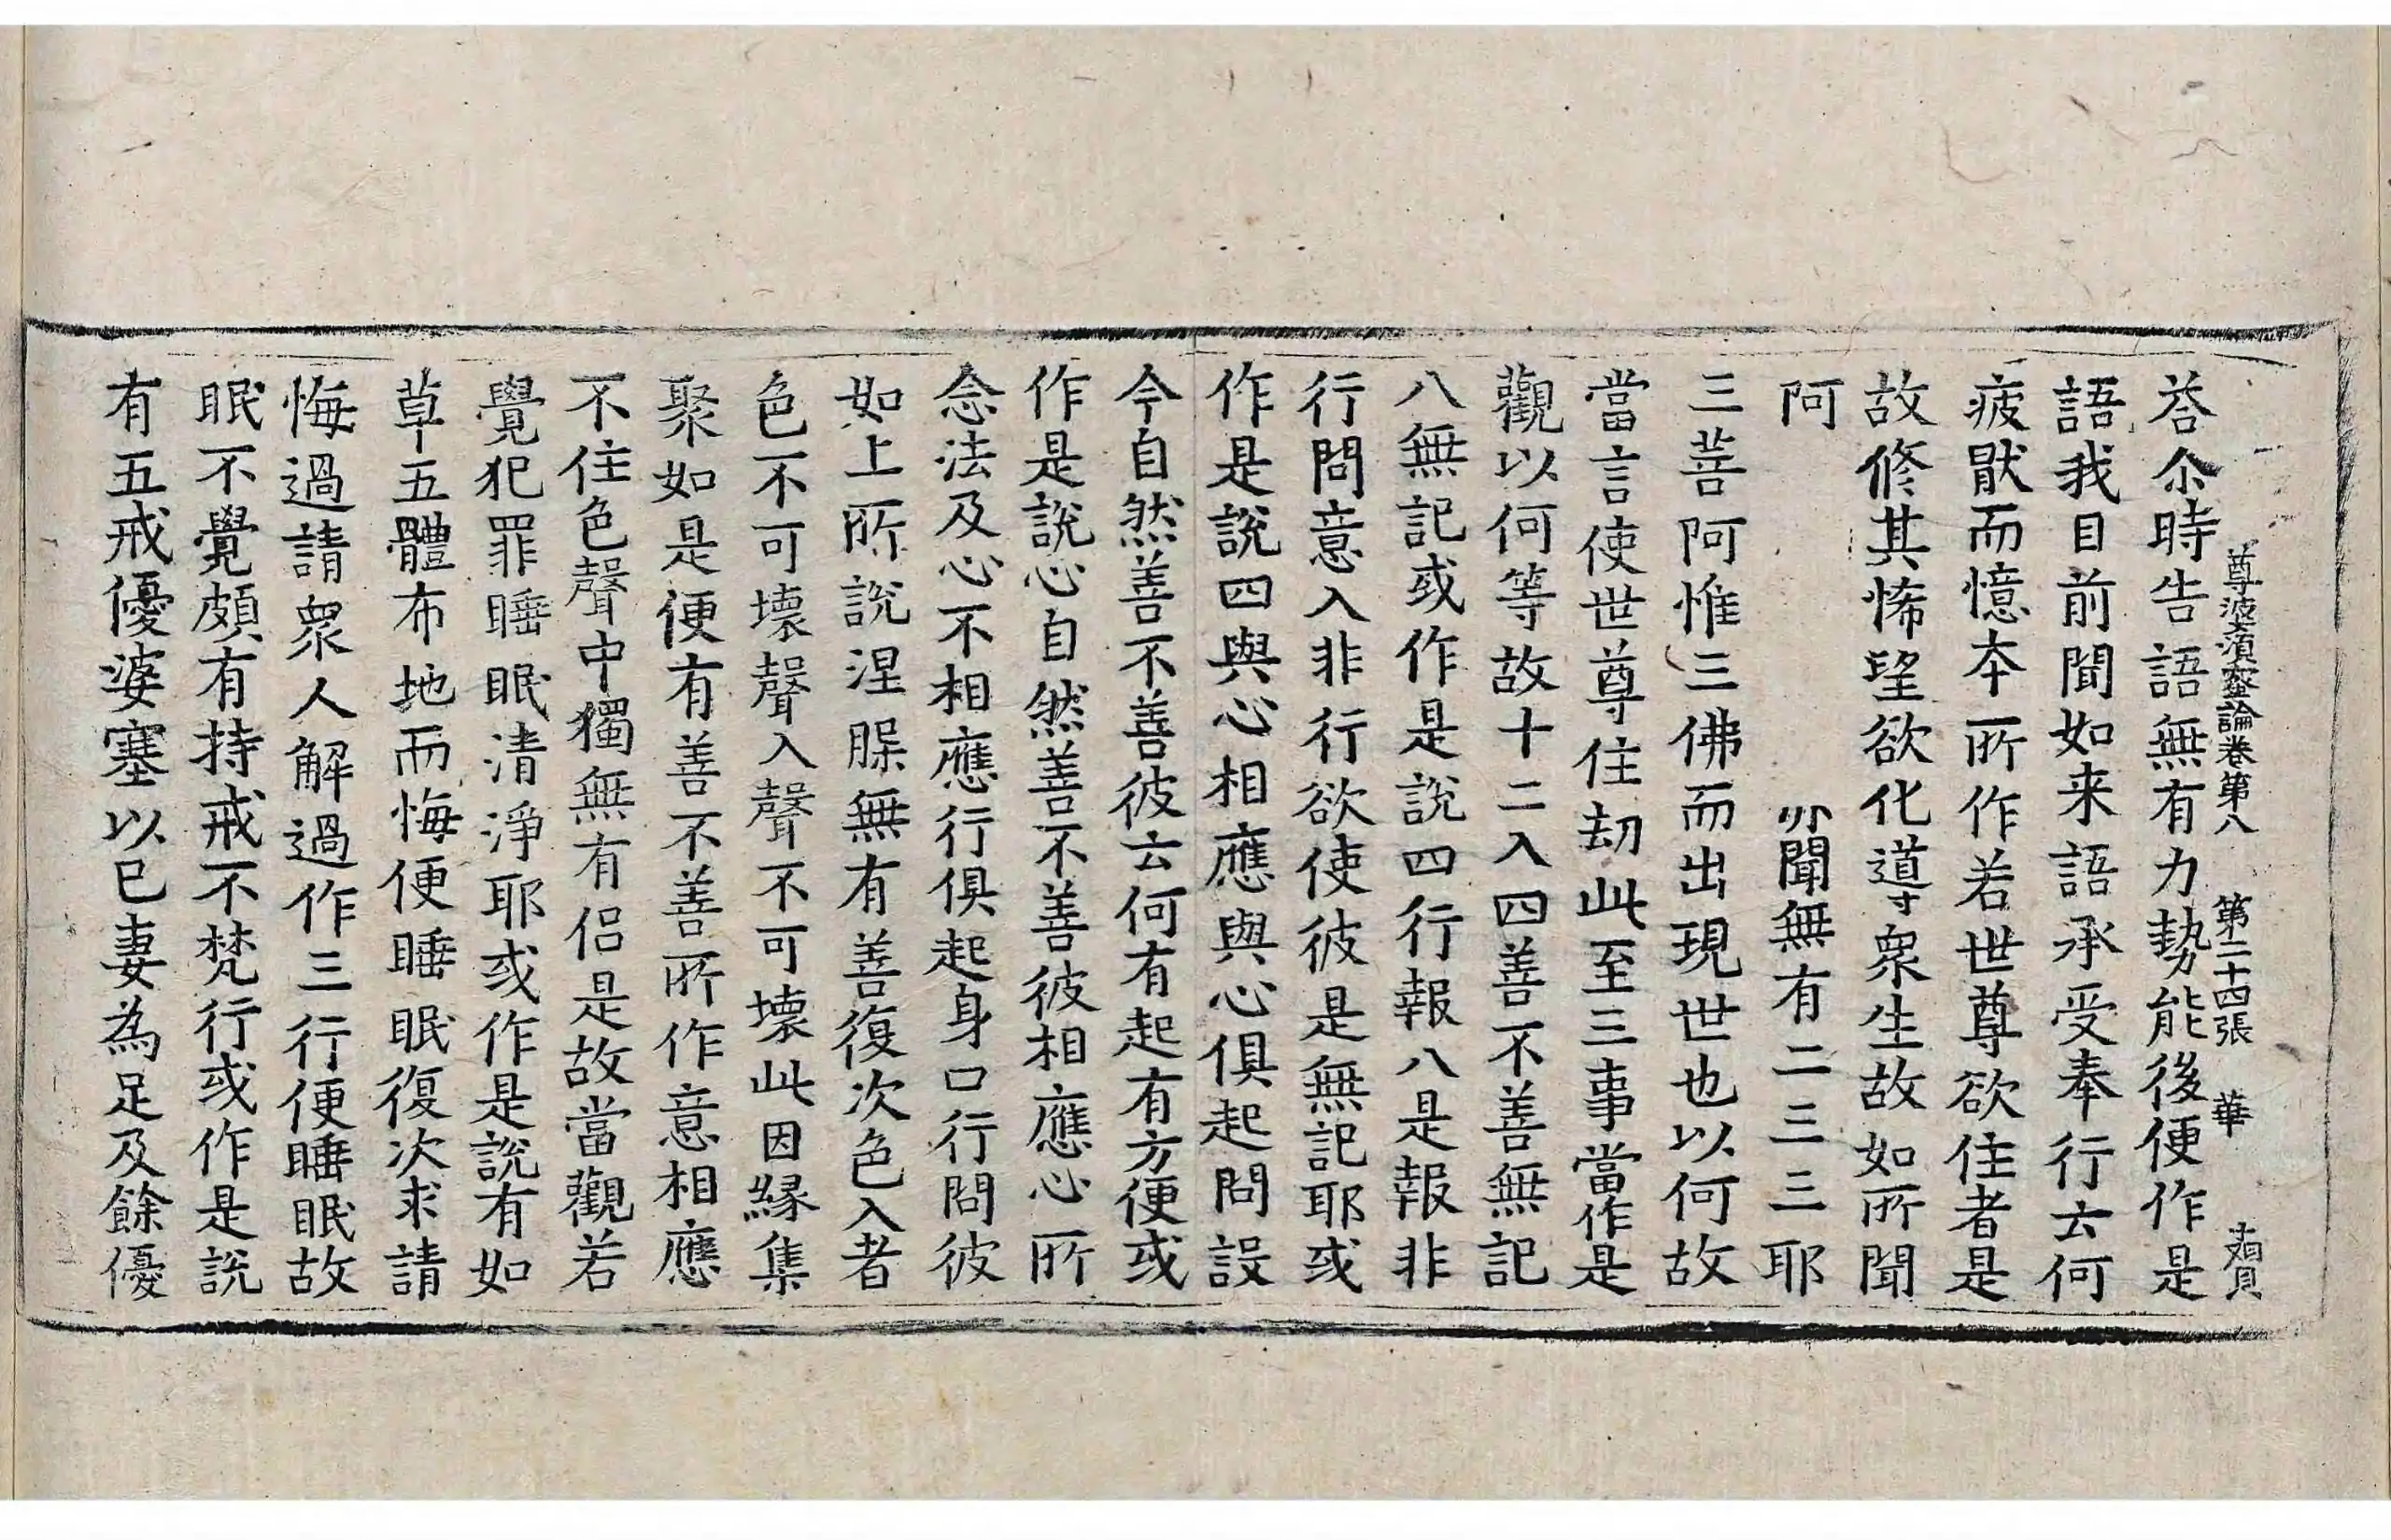 尊婆須蜜論卷第八　第二十四張　華
荅尒時告語無有力勢能後便作是
語我目前聞如来語承受奉行云何
疲猒而憶本所作若世尊欲住者是
故修其悕望欲化導衆生故如所聞
阿　夘聞無有二三三耶
三菩阿惟三佛而出現世也以何故
當言使世尊住劫此至三事當作是
觀以何等故十二入四善不善無記
八無記或作是說四行報八是報非
行問意入非行欲使彼是無記耶或
作是說四與心相應與心俱起問設
今自然善不善彼云何有起有方便或
作是說心自然善不善彼相應心所
念法及心不相應行俱起身口行問彼
如上所說涅槃無有善復次色入者
色不可壞聲入聲不可壞此因緣集
聚如是便有善不善所作意相應
不住色聲中獨無有侶是故當觀若
覺犯罪睡眠清淨耶或作是說有如
草五體布地而悔便睡眠復次求請
悔過請衆人解過作三行便睡眠故
眠不覺頗有持戒不梵行或作是說
有五戒優婆塞以已妻為足及餘優